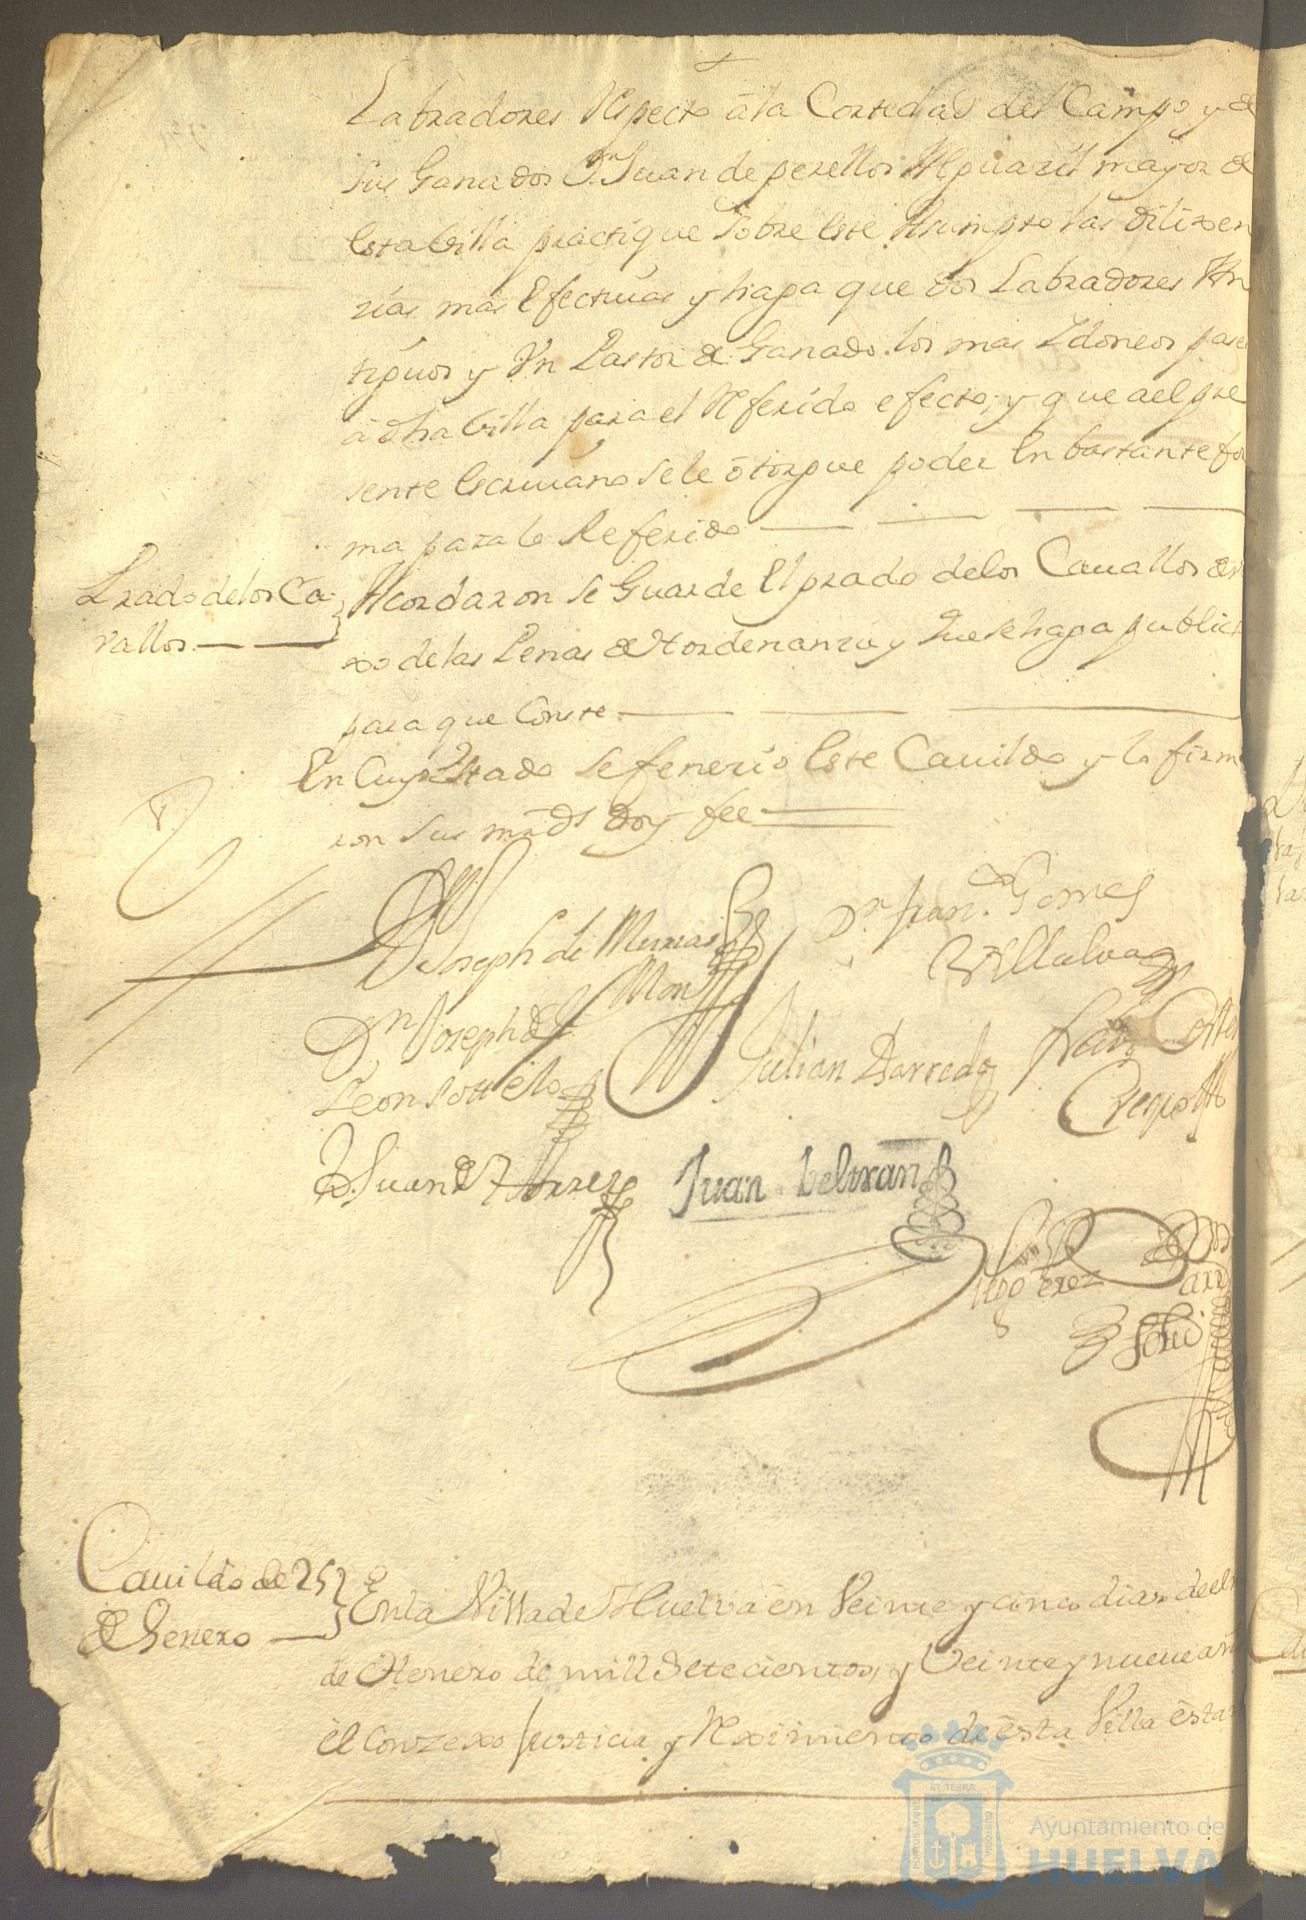 Labradores respecto â la Cortedad del Campo y de
sus Ganados Dn Juan de perellos Alguaril mayor de
esta villa practique sobre este Asumpto las dilixen
zias mas efectivas y haga que dos Labradores An
tiguos y Un Pastor de Ganado los mas Ydoneos pase
â dha villa para el referido efecto, y que a el pre
sente escrivano se le ôtorgue poder en bastante for
ma para lo Referido
Prado de los Ca
vallos
Acordaron se Guarde El prado de los Cavallos de
xo de las Penas de Hordenanza y que se haga public
para que Conste
En Cuyo Estado se fenecio este Cavildo y lo firm
ron sus mrds doy fee
Joseph de
Dn Fran.co Gomes
Villalva
Dn Joseph de
Leon sottelo
Julian Barreda
Crespo
D. Juan de
Juan beltran
Perez
Cavildo de 25
de Henero
En la Villa de Huelva en Veinte y cinco dias de el m
de Henero de mill Setecientos, y Veinte y nueve añ
el Conzexo Justicia y Reximiento de esta Villa esta
ET TERRÆ
PORTUS MARIS
CUSTODIA
Ayuntamiento de
HUELVA